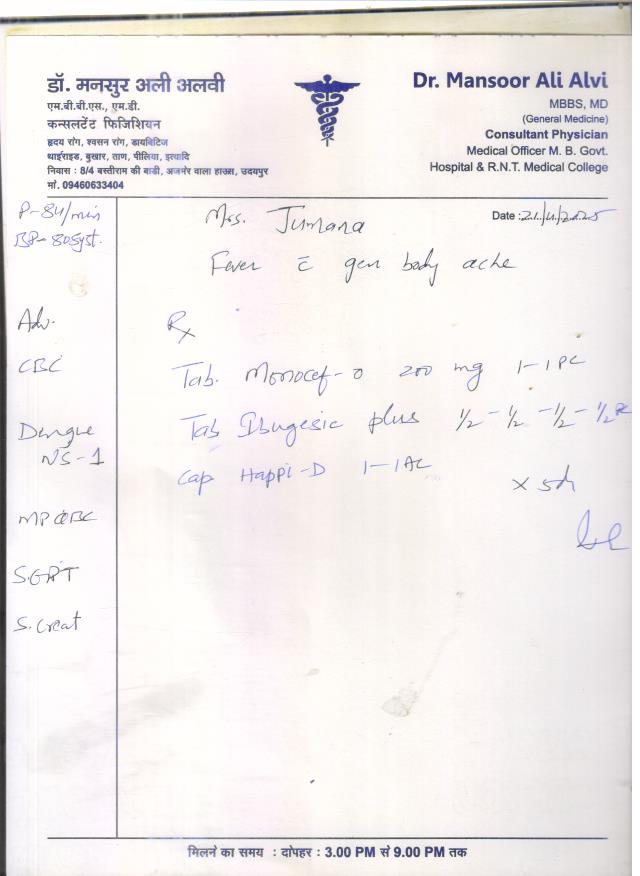 डॉ. मनसुर अली अलवी
एम.बी.बी.एस., एम.डी.
कन्सलटेंट फिजिशियन
हृदय रोग, श्वसन रोग, डायबिटिज
थाईराइड, बुखार, ताण, पीलिया, इत्यादि
निवास : 8/4 बस्तीराम की बाडी, अजमेर वाला हाउस, उदयपुर
मो. 09460633404
Dr. Mansoor Ali Alvi
MBBS, MD
(General Medicine)
Consultant Physician
Medical Officer M. B. Govt.
Hospital & R.N.T. Medical College
P-84/min
BP- 80 Syst.
Mrs. Jumana
Date :
Fever c̄ gen body ache
Adv.
CBC
Dengue
NS-1
MP
S.GPT
S. Creat
Rx
Tab. Monocef-o 200 mg 1-1 PC
Tab Ibugesic plus 1/2 - 1/2 - 1/2 - 1/2
Cap Happi-D 1-1 AC
x 5d
मिलने का समय : दोपहर : 3.00 PM से 9.00 PM तक